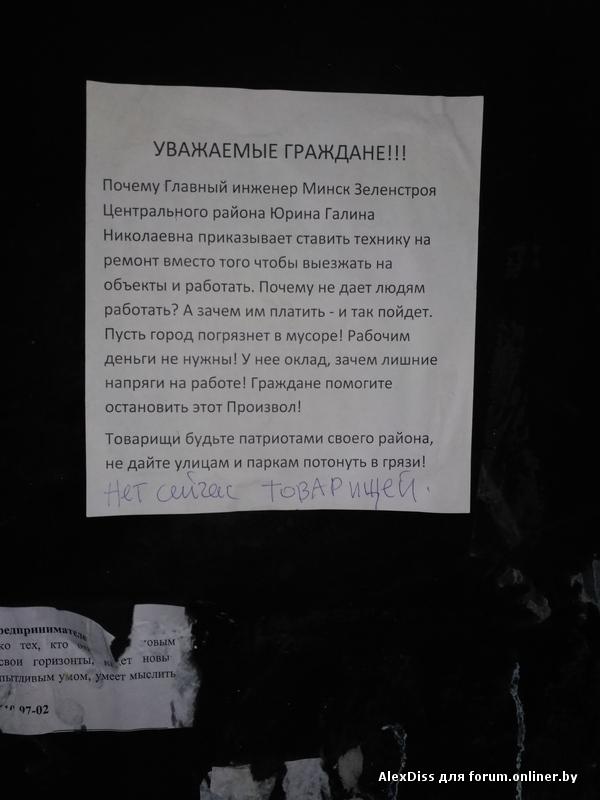 УВАЖАЕМЫЕ ГРАЖДАНЕ!!!
Почему Главный инженер Минск Зеленстроя
Центрального района Юрина Галина
Николаевна приказывает ставить технику на
ремонт вместо того чтобы выезжать на
объекты и работать. Почему не дает людям
работать? А зачем им платить - и так пойдет.
Пусть город погрязнет в мусоре! Рабочим
деньги не нужны! У нее оклад, зачем лишние
напряги на работе! Граждане помогите
остановить этот Произвол!
Товарищи будьте патриотами своего района,
не дайте улицам и паркам потонуть в грязи!
Нет сейчас товарищей.
тех, кто
свои горизонты, новы
пытливым умом, умеет мыслить
97-02
AlexDiss для forum.onliner.by